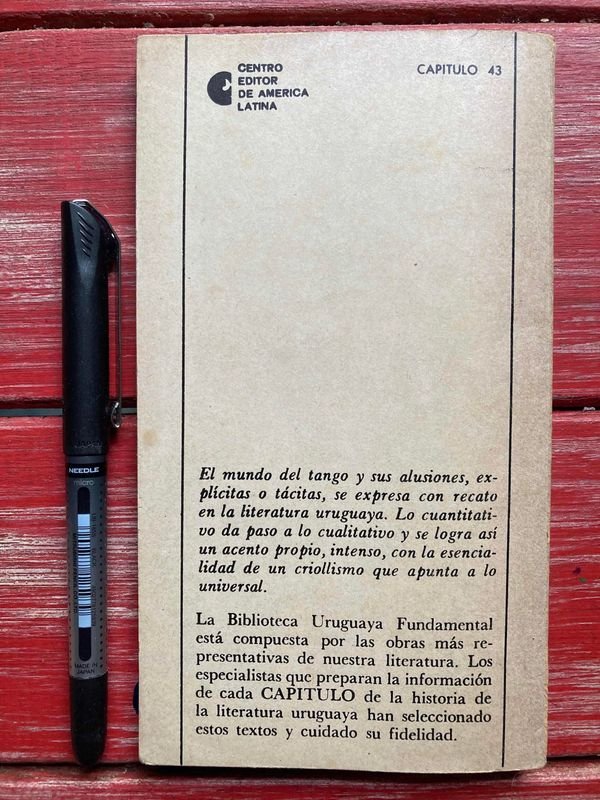 CENTRO
EDITOR
DE AMERICA
LATINA
CAPITULO 43
El mundo del tango y sus alusiones, ex-
plícitas o tácitas, se expresa con recato
en la literatura uruguaya. Lo cuantitati-
vo da paso a lo cualitativo y se logra así
un acento propio, intenso, con la esencia-
lidad de un criollismo que apunta a lo
universal.
La Biblioteca Uruguaya Fundamental
está compuesta por las obras más re-
presentativas de nuestra literatura. Los
especialistas que preparan la información
de cada CAPITULO de la historia de
la literatura uruguaya han seleccionado
estos textos y cuidado su fidelidad.
JAPAN
NEEDLE
micro
MADE IN
JAPAN